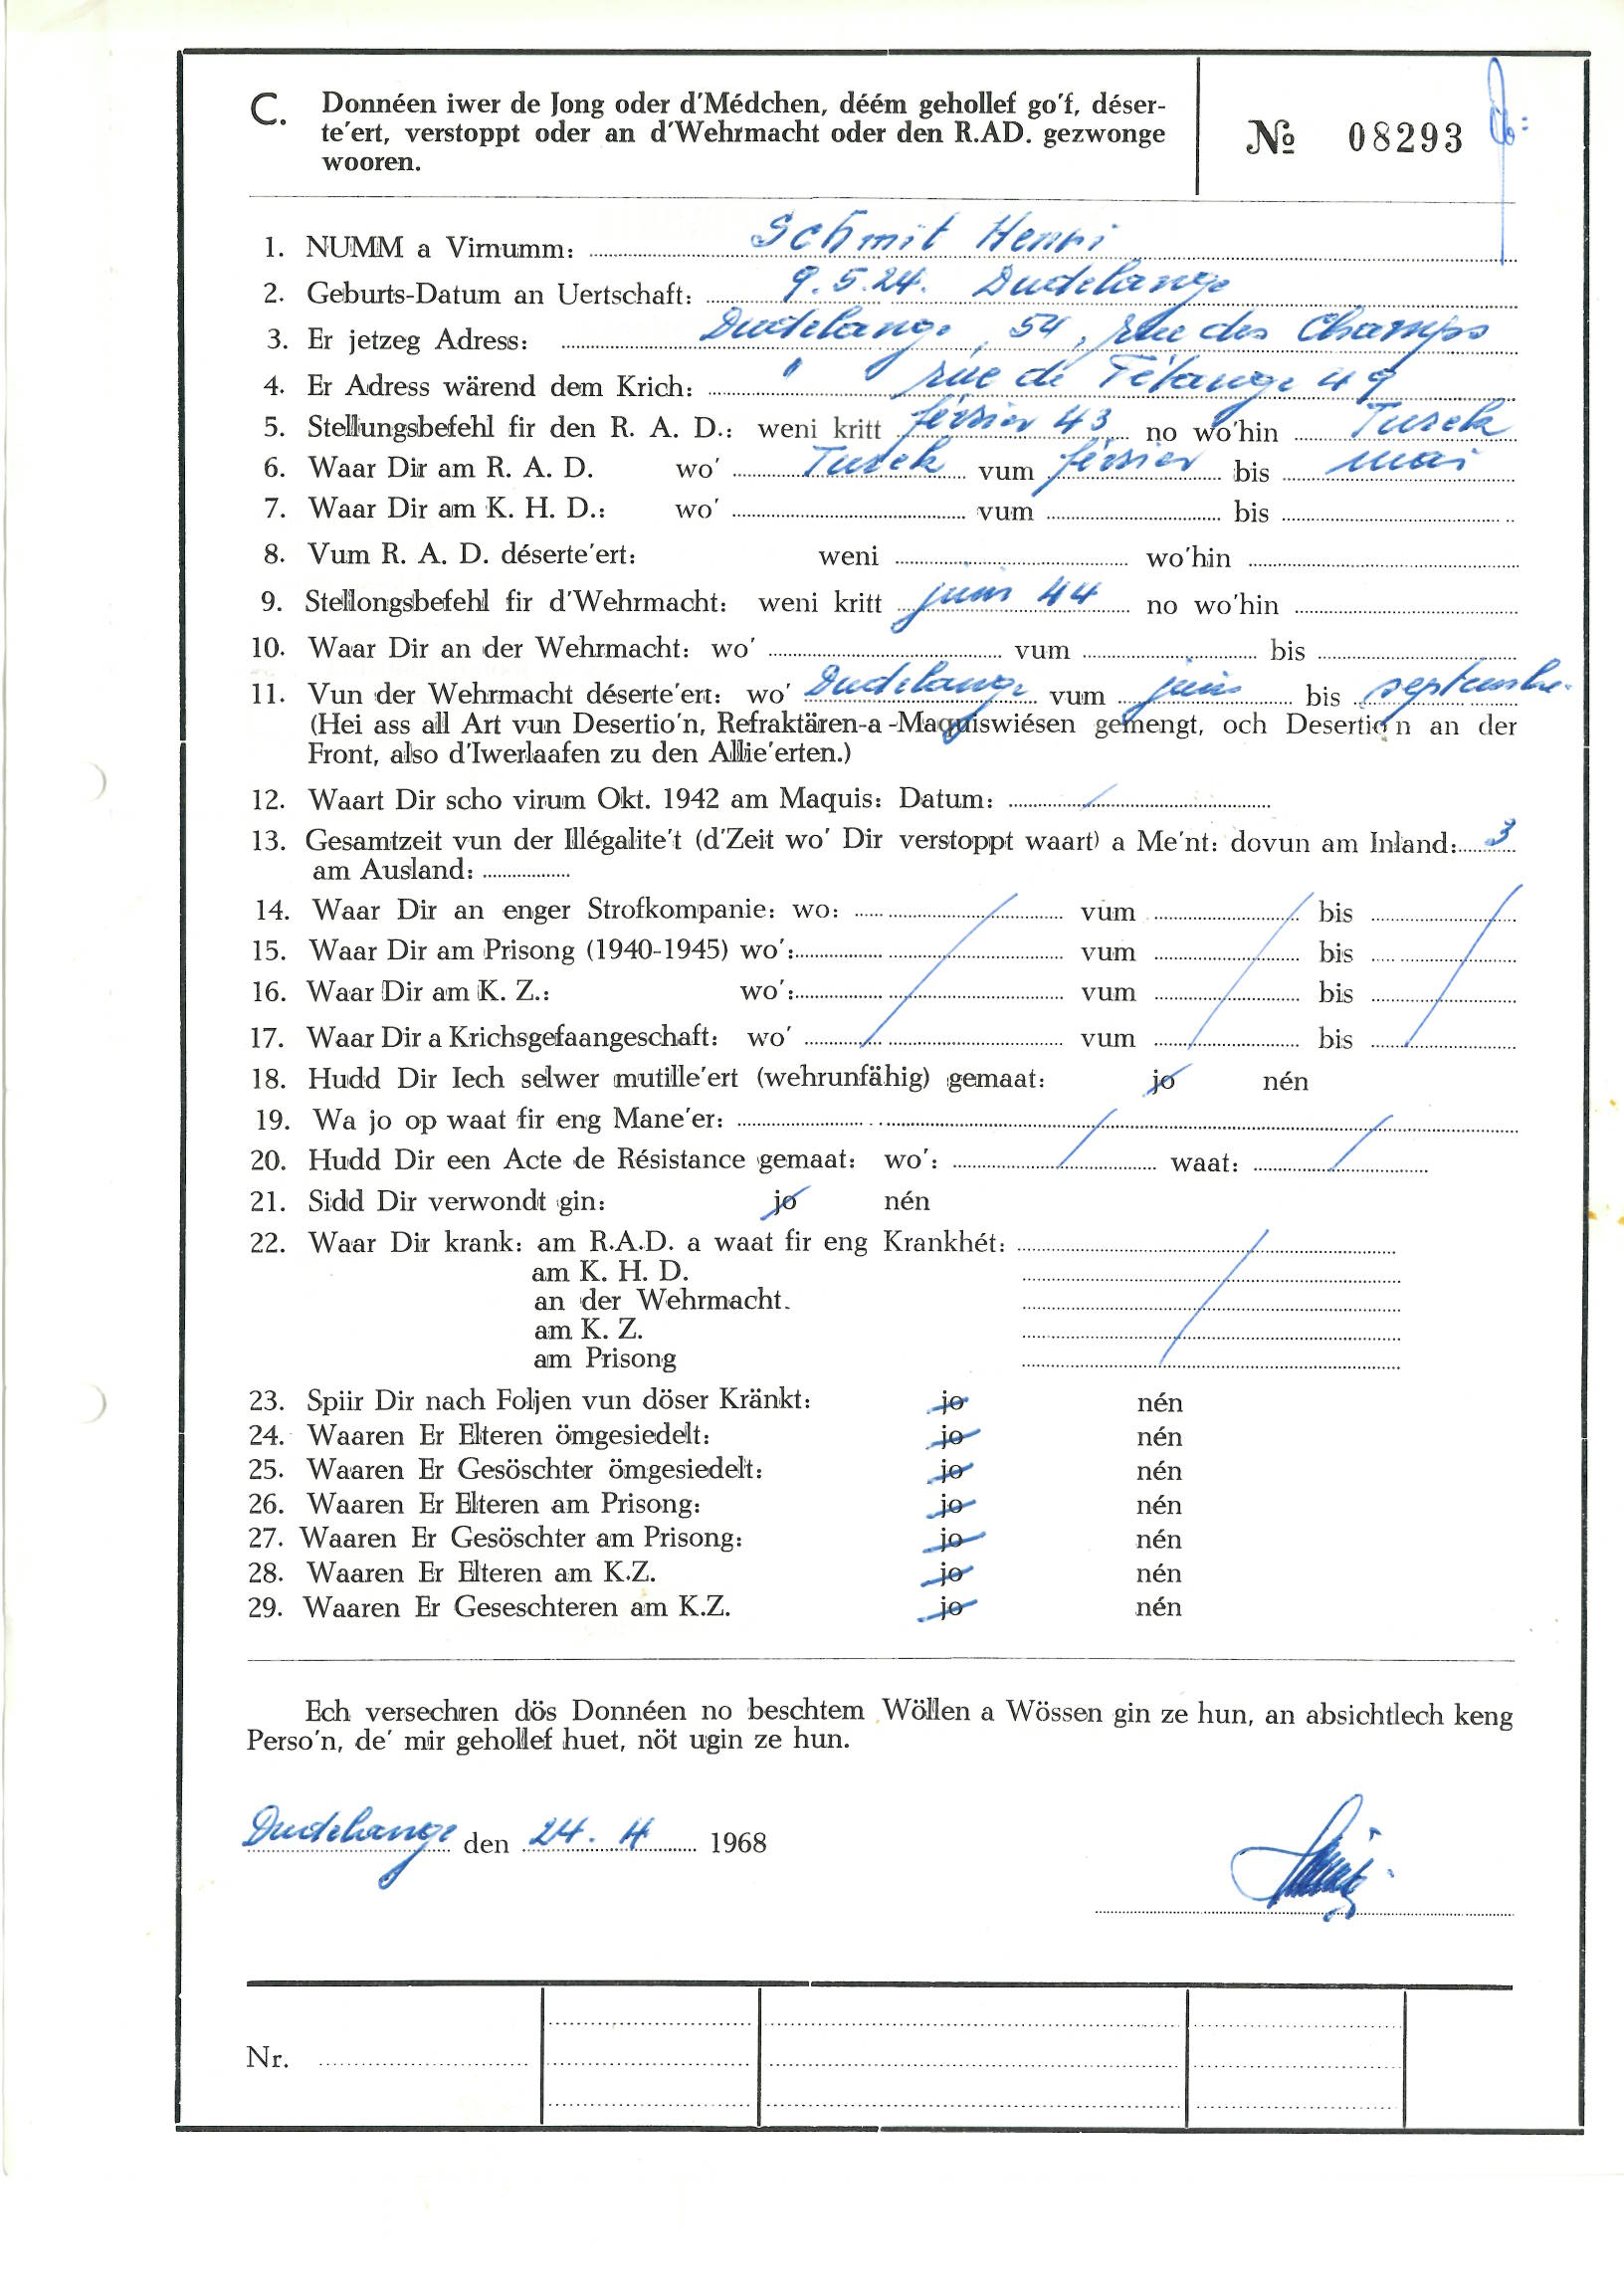 C. Donnéen iwer de Jong oder d'Médchen, déém gehollef go'f, déser-
te'ert, verstoppt oder an d'Wehrmacht oder den R.AD. gezwonge
wooren.
№ 08293
1. NUMM a Virnumm: Schmit Henri
2. Geburts-Datum an Uertschaft: 9.5.24. Dudelange
3. Er jetzeg Adress: Dudelange, 54, rue des Champs
4. Er Adress wärend dem Krich: " rue de Tétange 49
5. Stellungsbefehl fir den R. A. D.: weni kritt février 43 no wo'hin Turek
6. Waar Dir am R. A. D. wo' Turek vum février bis mai
7. Waar Dir am K. H. D.: wo' vum bis
8. Vum R. A. D. déserte'ert: weni wo'hin
9. Stellongsbefehl fir d'Wehrmacht: weni kritt juin 44 no wo'hin
10. Waar Dir an der Wehrmacht: wo' vum bis
11. Vun der Wehrmacht déserte'ert: wo' Dudelange vum juin bis septembre
(Hei ass all Art vun Desertio'n, Refraktären-a-Maquiswiésen gemengt, och Desertio'n an der
Front, also d'Iwerlaafen zu den Allie'erten.)
12. Waart Dir scho virum Okt. 1942 am Maquis: Datum:
13. Gesamtzeit vun der Illégalite't (d'Zeit wo' Dir verstoppt waart) a Me'nt: dovun am Inland: 3
am Ausland:
14. Waar Dir an enger Strofkompanie: wo: vum bis
15. Waar Dir am Prisong (1940-1945) wo': vum bis
16. Waar Dir am K. Z.: wo': vum bis
17. Waar Dir a Krichsgefaangeschaft: wo' vum bis
18. Hudd Dir Iech selwer mutille'ert (wehrunfähig) gemaat: jo nén
19. Wa jo op waat fir eng Mane'er:
20. Hudd Dir een Acte de Résistance gemaat: wo': waat:
21. Sidd Dir verwondt gin: jo nén
22. Waar Dir krank: am R.A.D. a waat fir eng Krankhét:
am K. H. D.
an der Wehrmacht.
am K. Z.
am Prisong
23. Spiir Dir nach Foljen vun döser Kränkt: jo nén
24. Waaren Er Elteren ömgesiedelt: jo nén
25. Waaren Er Gesöschter ömgesiedelt: jo nén
26. Waaren Er Elteren am Prisong: jo nén
27. Waaren Er Gesöschter am Prisong: jo nén
28. Waaren Er Elteren am K.Z. jo nén
29. Waaren Er Geseschteren am K.Z. jo nén
Ech versechren dös Donnéen no beschtem Wöllen a Wössen gin ze hun, an absichtlech keng
Perso'n, de' mir gehollef huet, nöt ugin ze hun.
Dudelange den 24. 4 1968
Nr.